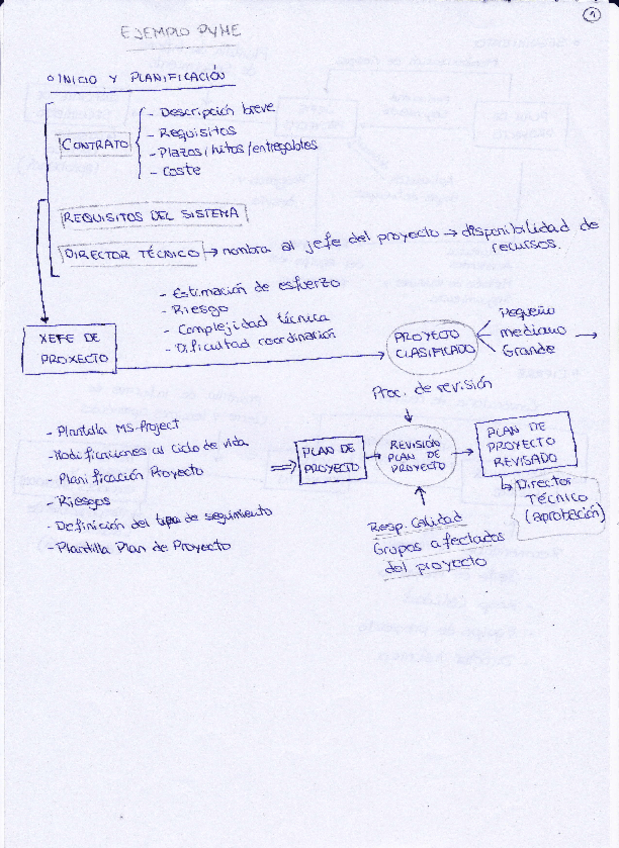 1
EJEMPLO PYME
INICIO Y PLANIFICACIÓN
CONTRATO
- Descripción breve
- Requisitos
- Plazos/hitos/entregables
- Coste
REQUISITOS DEL SISTEMA
DIRECTOR TÉCNICO → nombra al jefe del proyecto → disponibilidad de
recursos.
- Estimación de esfuerzo
- Riesgo
- Complejidad técnica
- Dificultad coordinación
XEFE DE
PROXECTO
PROYECTO
CLASIFICADO
Pequeño
mediano
Grande
Proc. de revisión
- Plantilla MS-Project
- Modificaciones al ciclo de vida
- Planificación Proyecto
- Riesgos
- Definición del tipo de seguimiento
- Plantilla Plan de Proyecto
PLAN DE
PROYECTO
REVISIÓN
PLAN DE
PROYECTO
PLAN DE
PROYECTO
REVISADO
Director
TÉCNICO
(aprobación)
Resp. Calidad
Grupos afectados
del proyecto